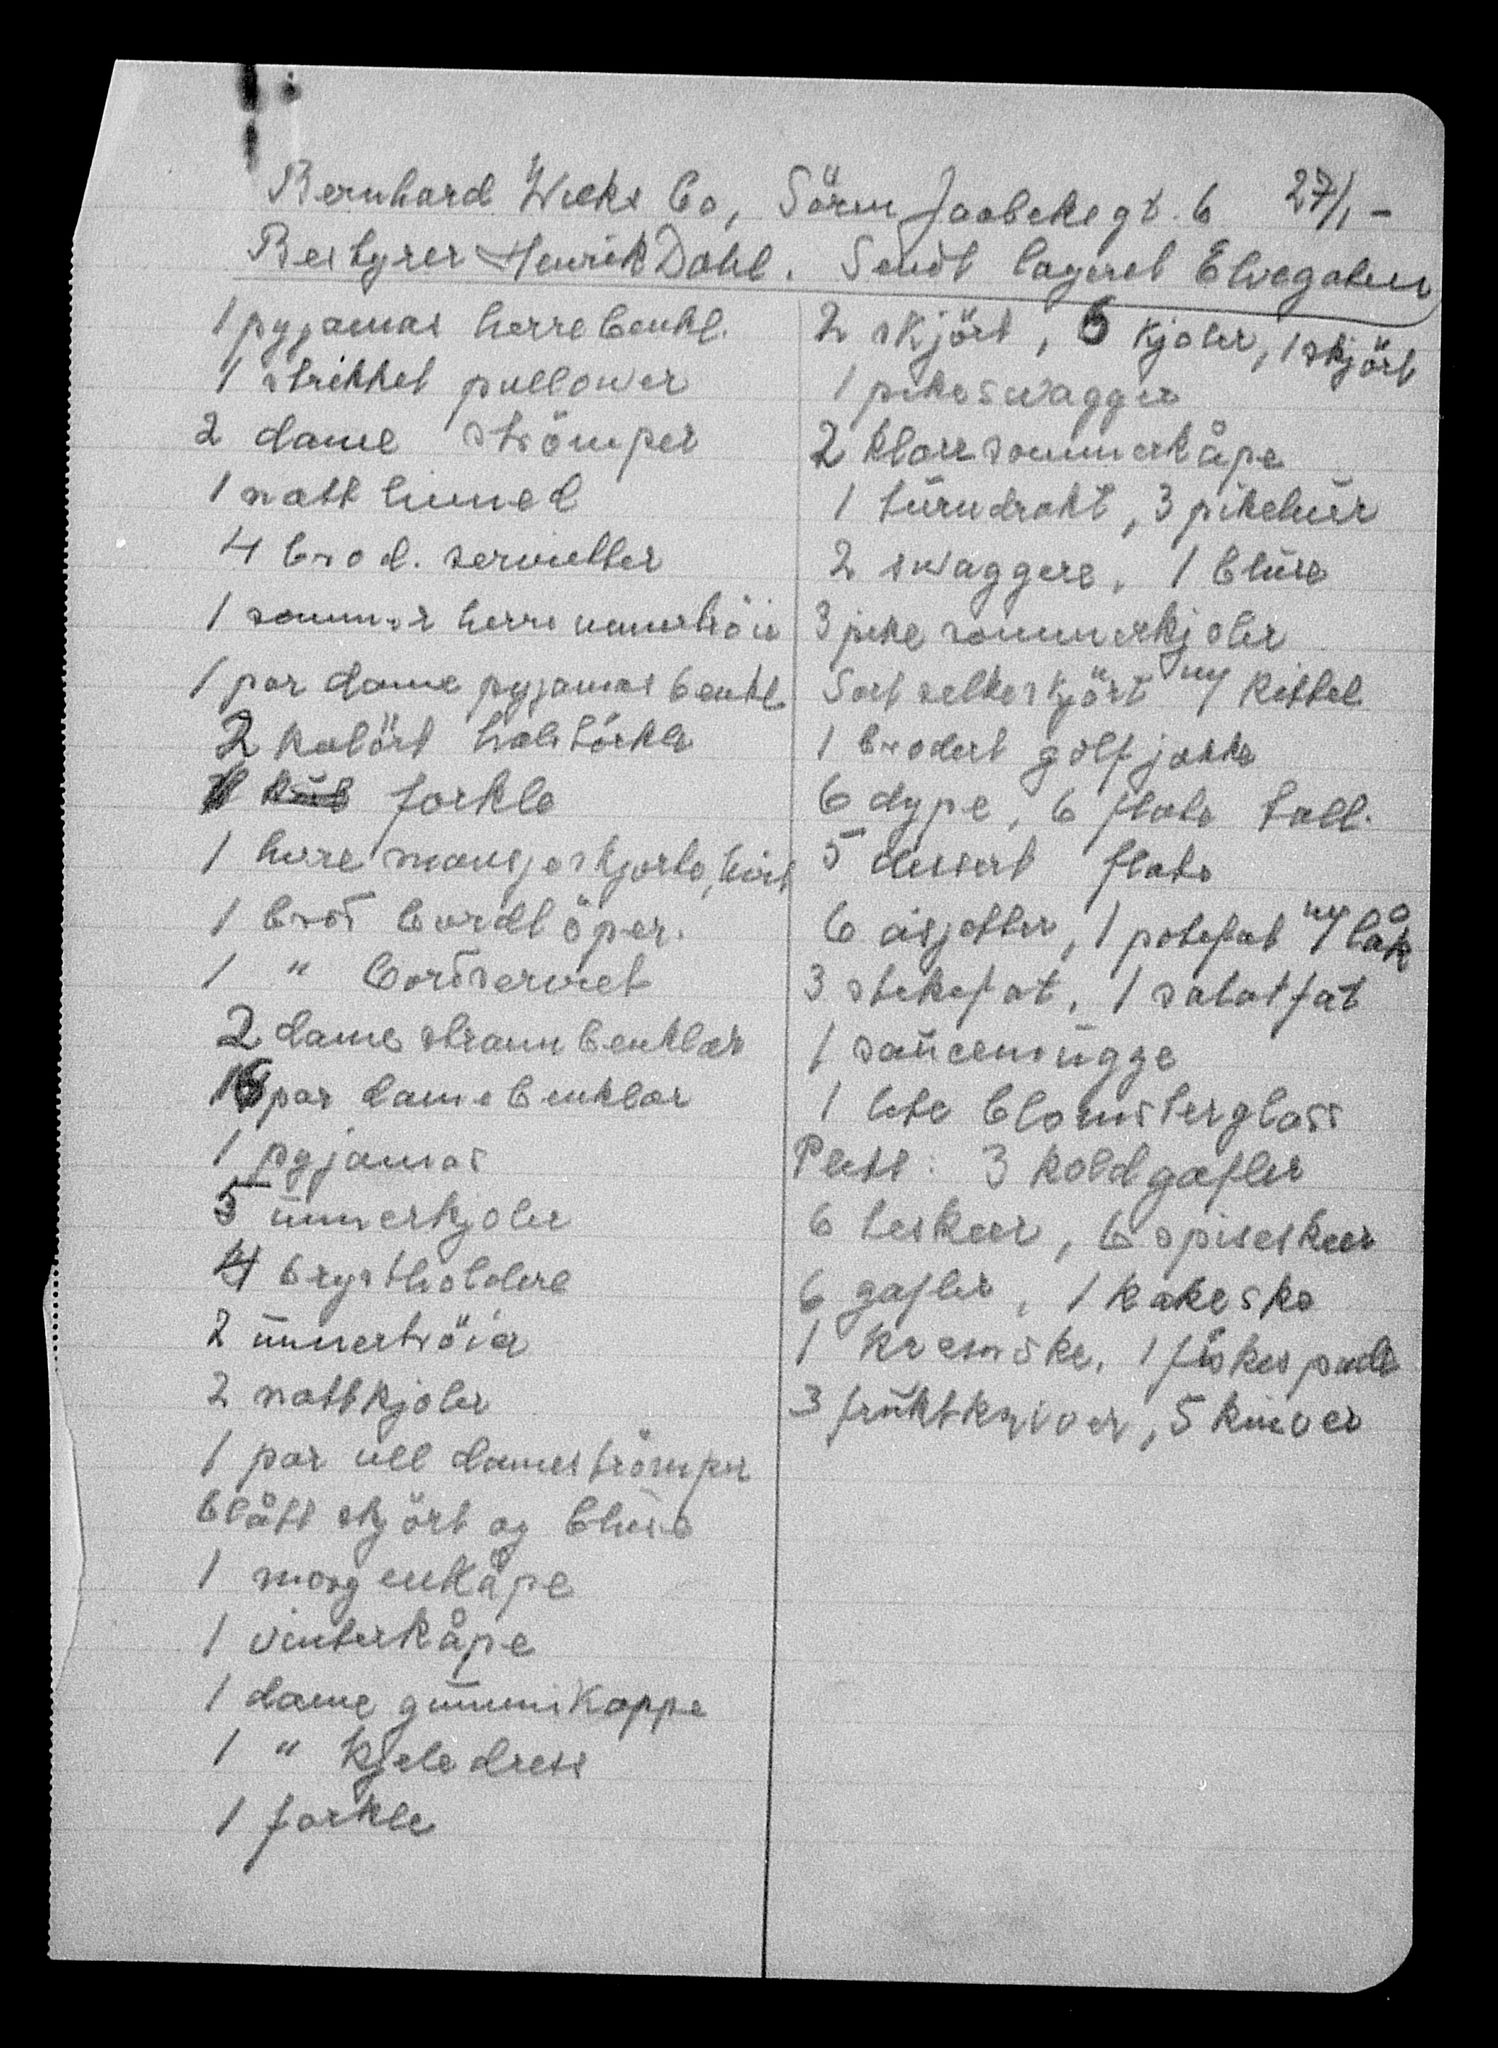 Bernhard Wicks Co, Sören Jaabeks gt. 6 27/1 -
Bestyrer Henrik Dahl. Sendt lageret Elvegaten
1 pyjamas herrebenkl.
1 strikket pullower
2 dame strömper
1 natt linned
4 brod. servietter
1 sommer herre unnertröie
1 par dame pyjamas benkl
2 kulört halstörkle
forkle
1 herre mansjeskjorte, hvit
1 brod bordlöper.
1 " bordserviet
2 dame stramm benklær
par dame benklær
1 pyjamas
5 unnerkjoler
4 brystholdere
2 unnertröier
2 nattkjoler
1 par ull dameströmper
blått skjört og bluse
1 morgenkåpe
1 vinterkåpe
1 dame gummikappe
1 " kjeledress
1 forkle
2 skjört, 6 kjoler, 1 skjört
1 pikeswagger
2 klarr sommerkåpe
1 turndrakt, 3 pikeluer
2 swaggere, 1 bluse
3 pike sommerkjoler
Sort silkeskjört ny kittel
1 brodert golfjakke
6 dype, 6 flate tall.
5 dessert flate
6 asjetter, 1 potefat m/ låk
3 stekefat, 1 salatfat
1 saucemugge
1 lite blomsterglass
Plett: 3 koldgafler
6 teskeer, 6 spiseskeer
6 gafler, 1 kakeske
1 kremske, 1 fiskespade
3 fruktkniver, 5 kniver